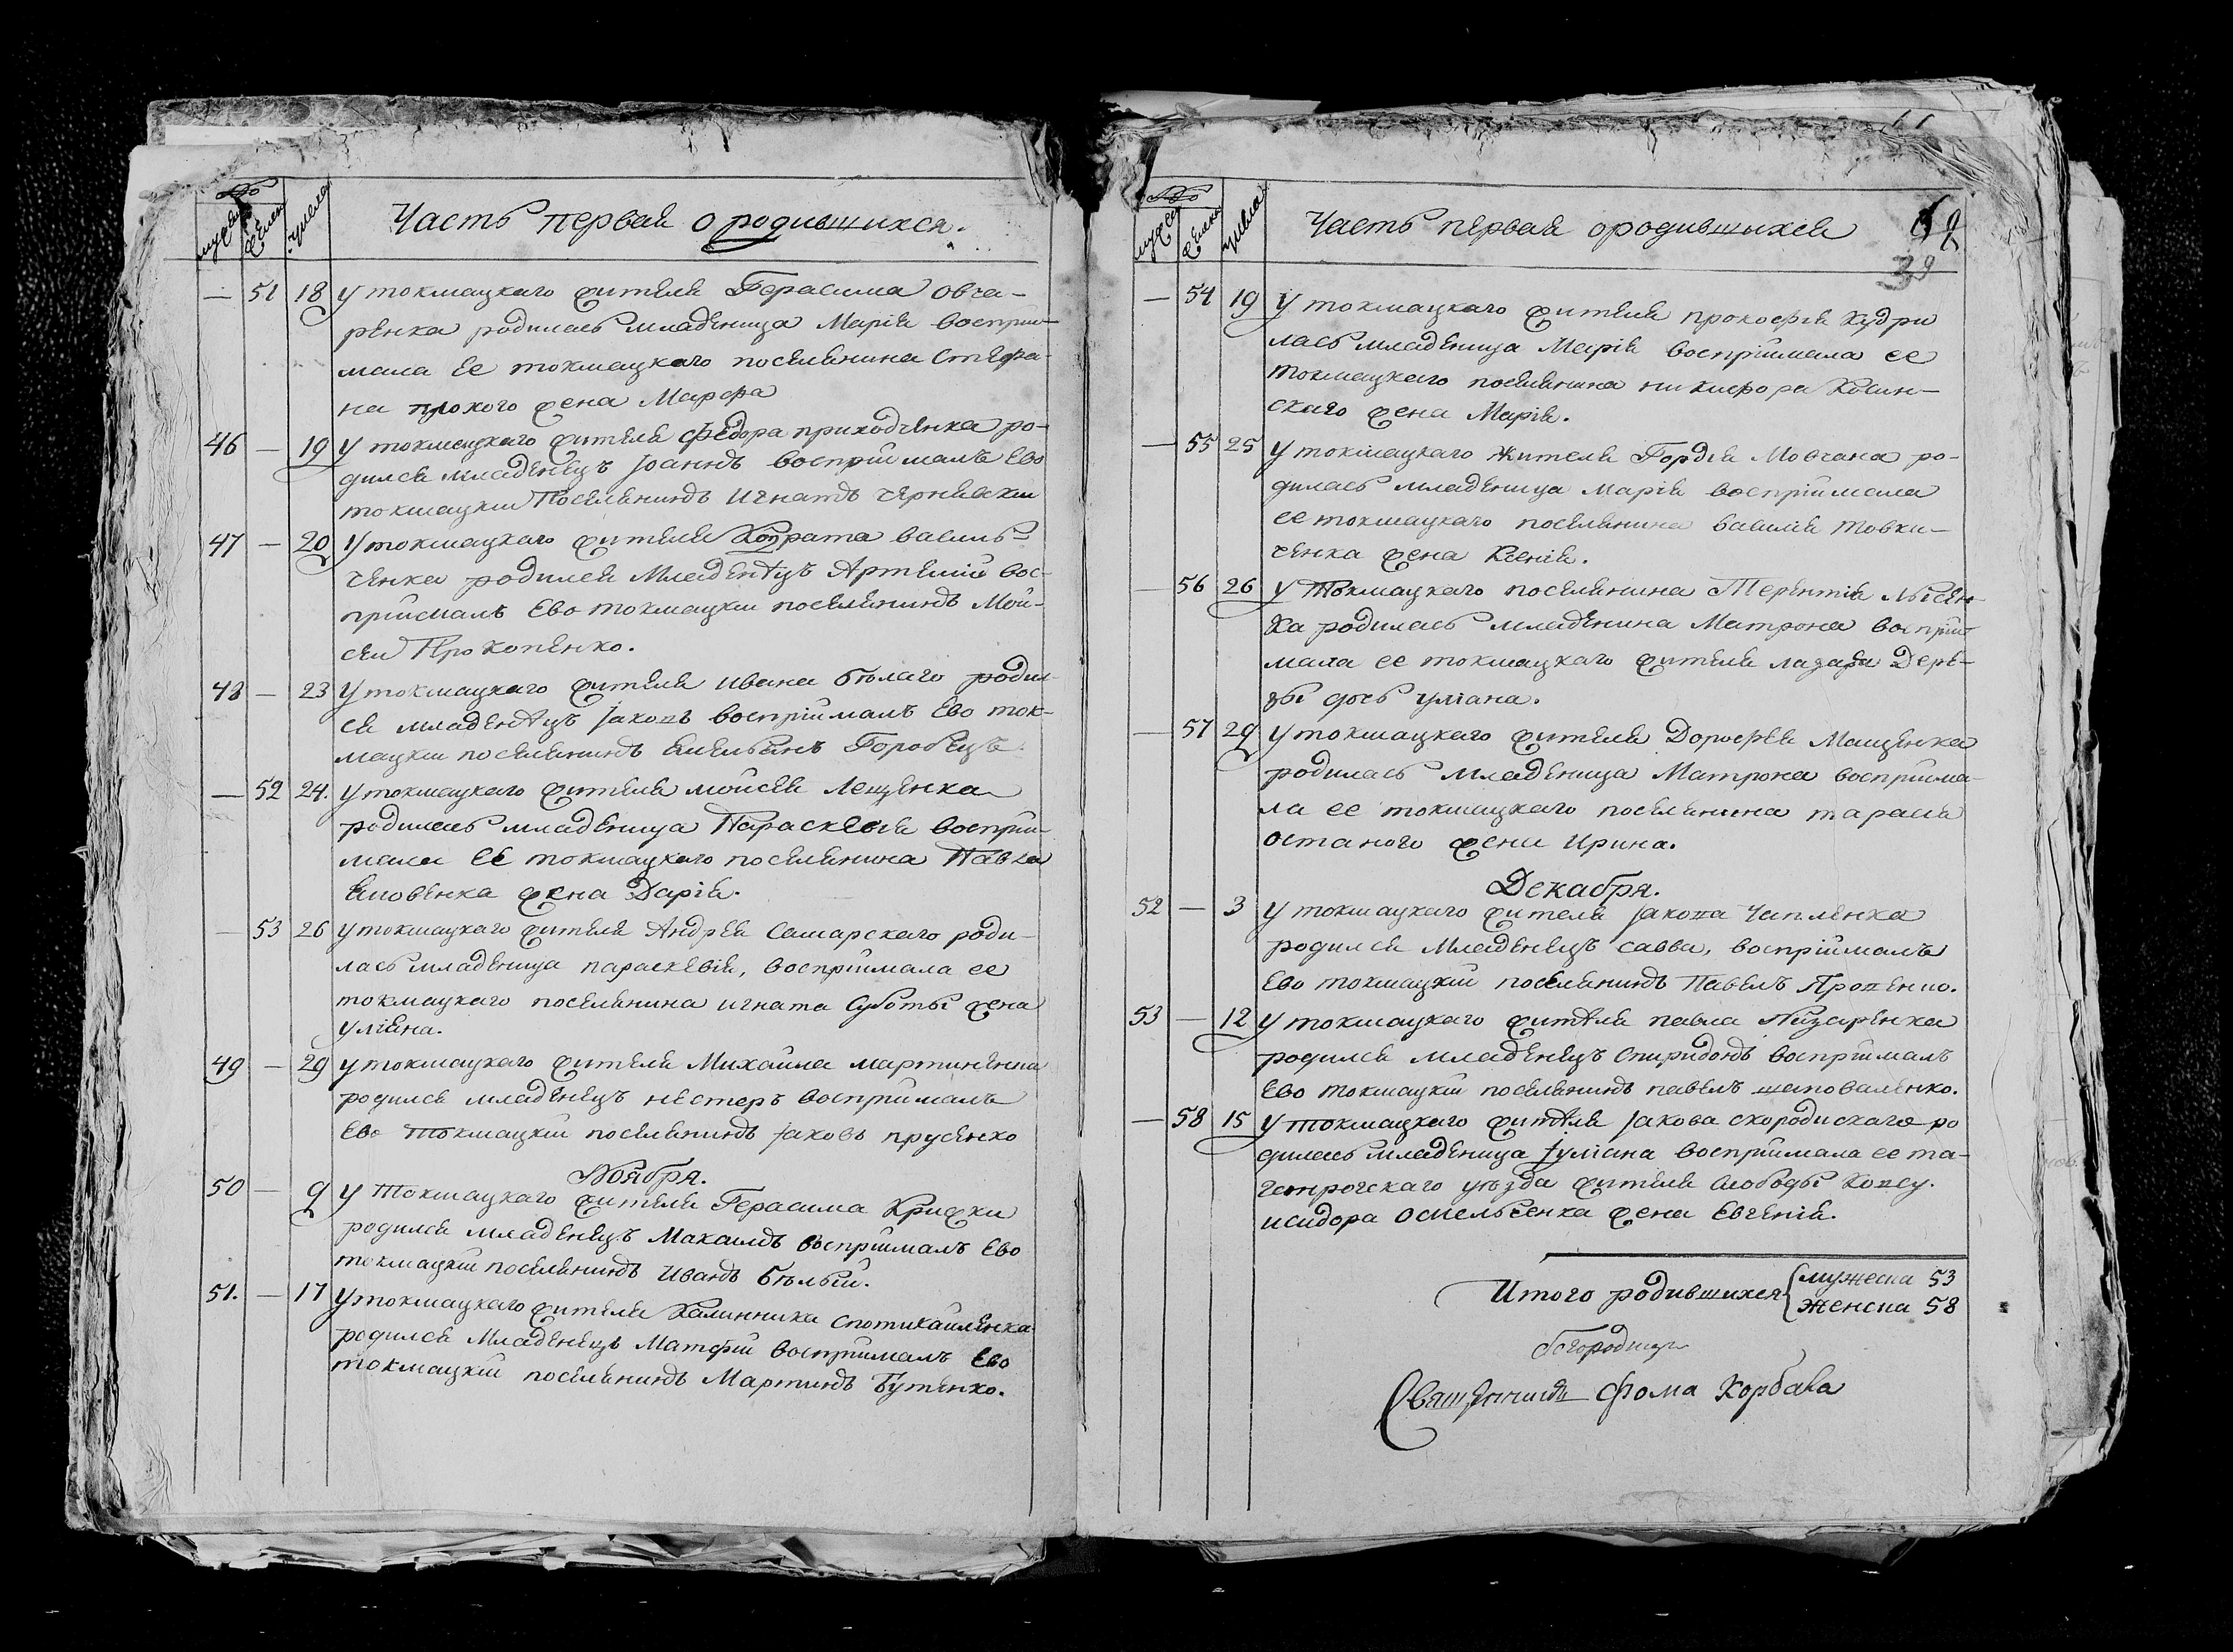 № мужеск женск числа
Часть первая о родившихся.
— 51 18 у токмацкаго жителя Герасима овча-
ренка родилась младеница Марія восприи-
мала ее токмацкаго поселянина Стефа-
на плохого жена Марфа
46 — 19 у токмацкаго жителя федора приходченка ро-
дился младенецъ Іоаннъ восприималъ Ево
токмацкии Поселянинъ Игнатъ чернявскии
47 — 20 У токмацкаго жителя Кондрата василь-
ченка родился Младенецъ Артемій вос-
приималъ Ево токмацкии поселянинъ Мои-
сеи Прокопенко.
48 — 23 У токмацкаго жителя ивана бѣлаго родил-
ся младенецъ Іаковъ восприималъ Ево ток-
мацкии поселянинъ Емельянъ Горобецъ
— 52 24. у токмацкаго жителя моисея Лещенка
родилась младеница Параскевія восприи-
мала ее токмацкаго поселянина Павла
Еловенка жена Дарія.
— 53 26 у токмацкаго жителя Андрея Самарскаго роди-
лась младеница параскевія, восприимала ее
токмацкаго поселянина игната Суботы жена
уліяна.
49 — 29 у токмацкаго жителя Михаила мартиненка
родился младенецъ нестеръ восприималъ
Ево токмацкіи поселянинъ Іаковъ прусенко
Ноября.
50 — 9 у токмацкаго жителя Герасима Крижки
родился младенецъ Михаилъ восприималъ Ево
токмацкіи поселянинъ Иванъ бѣлый.
51. — 17 у токмацкаго жителя Калинника спотикаиленка
родился Младенецъ Матфіи восприималъ Ево
токмацкіи поселянинъ Мартинъ Бутенко.
№ мужеск женск числа
Часть первая о родившихся
62
39
— 54 19 У токмацкаго жителя прокофія Кудри
лась младеница Марія восприимала ее
токмацкаго поселянина никифора Косин-
скаго жена Марія.
— 55 25 у токмацкаго жителя Гордія Мовчана ро-
дилась младеница Марія восприимала
ее токмацкаго поселянина василія товки-
ченка жена Ксенія.
— 56 26 у токмацкаго поселянина Терентія лысен-
Ка родилась младенина Матрона восприи-
мала ее токмацкаго жителя лазаря Дере-
зы дочь уліана.
— 57 29 у токмацкаго жителя Дорофея Мащенка
родилась младеница Матрона восприима-
ла ее токмацкаго поселянина тарасія
останого жена Ирина.
Декабря.
52 — 3 у токмацкаго жителя Іакова Чапленка
родился Младенецъ савва, восприималъ
Ево токмацкіи поселянинъ Павелъ Яропенко.
53 — 12 у токмацкаго жителя павла Назаренка
родился младенецъ Спиридонъ восприималъ
Ево токмацкіи поселянинъ павелъ шаповаленко.
— 58 15 у токмацкаго жителя Іакова скородискаго ро
дилась младеница Іуліана восприимала ее та-
ганрогскаго уѣзда жителя слободы Копсу.
исидора Омельсенка жена Евгенія.
Итого родившихся мужеска 53
женска 58
Богородицк
Священникъ Фома Корбава